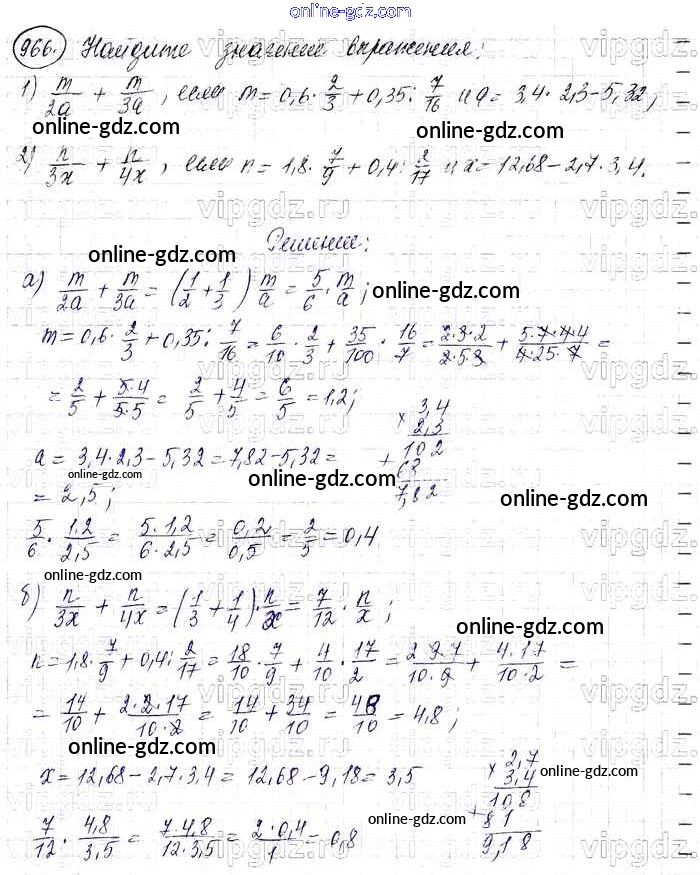 online-gdz.com
966. Найдите значение выражения:
1) m/2a + m/3a, если m = 0,6 · 2/3 + 0,35 : 7/16 и a = 3,4 · 2,3 - 5,32;
online-gdz.com online-gdz.com
2) n/3x + n/4x, если n = 1,8 · 7/9 + 0,4 : 2/17 и x = 12,68 - 2,7 · 3,4.
vipgdz.ru vipgdz.ru
Решение:
online-gdz.com
а) m/2a + m/3a = (1/2 + 1/3) m/a = 5/6 · m/a; online-gdz.com
m = 0,6 · 2/3 + 0,35 : 7/16 = 6/10 · 2/3 + 35/100 · 16/7 = 2·3·2/2·5·3 + 5·7·4·4/4·25·7 =
= 2/5 + 5·4/5·5 = 2/5 + 4/5 = 6/5 = 1,2;
× 3,4
2,3
102
+ 68
7,82
a = 3,4 · 2,3 - 5,32 = 7,82 - 5,32 =
online-gdz.com online-gdz.com
= 2,5; online-gdz.com
5/6 · 1,2/2,5 = 5·1,2/6·2,5 = 0,2/0,5 = 2/5 = 0,4
online-gdz.com
б) n/3x + n/4x = (1/3 + 1/4) · n/x = 7/12 · n/x;
online-gdz.com
n = 1,8 · 7/9 + 0,4 : 2/17 = 18/10 · 7/9 + 4/10 · 17/2 = 2·9·7/10·9 + 4·17/10·2 =
= 14/10 + 2·2·17/10·2 = 14/10 + 34/10 = 48/10 = 4,8;
online-gdz.com
x = 12,68 - 2,7 · 3,4 = 12,68 - 9,18 = 3,5
× 2,7
3,4
108
+ 81
9,18
online-gdz.com
7/12 · 4,8/3,5 = 7·4,8/12·3,5 = 2·0,4/1 = 0,8
online-gdz.com
online-gdz.com